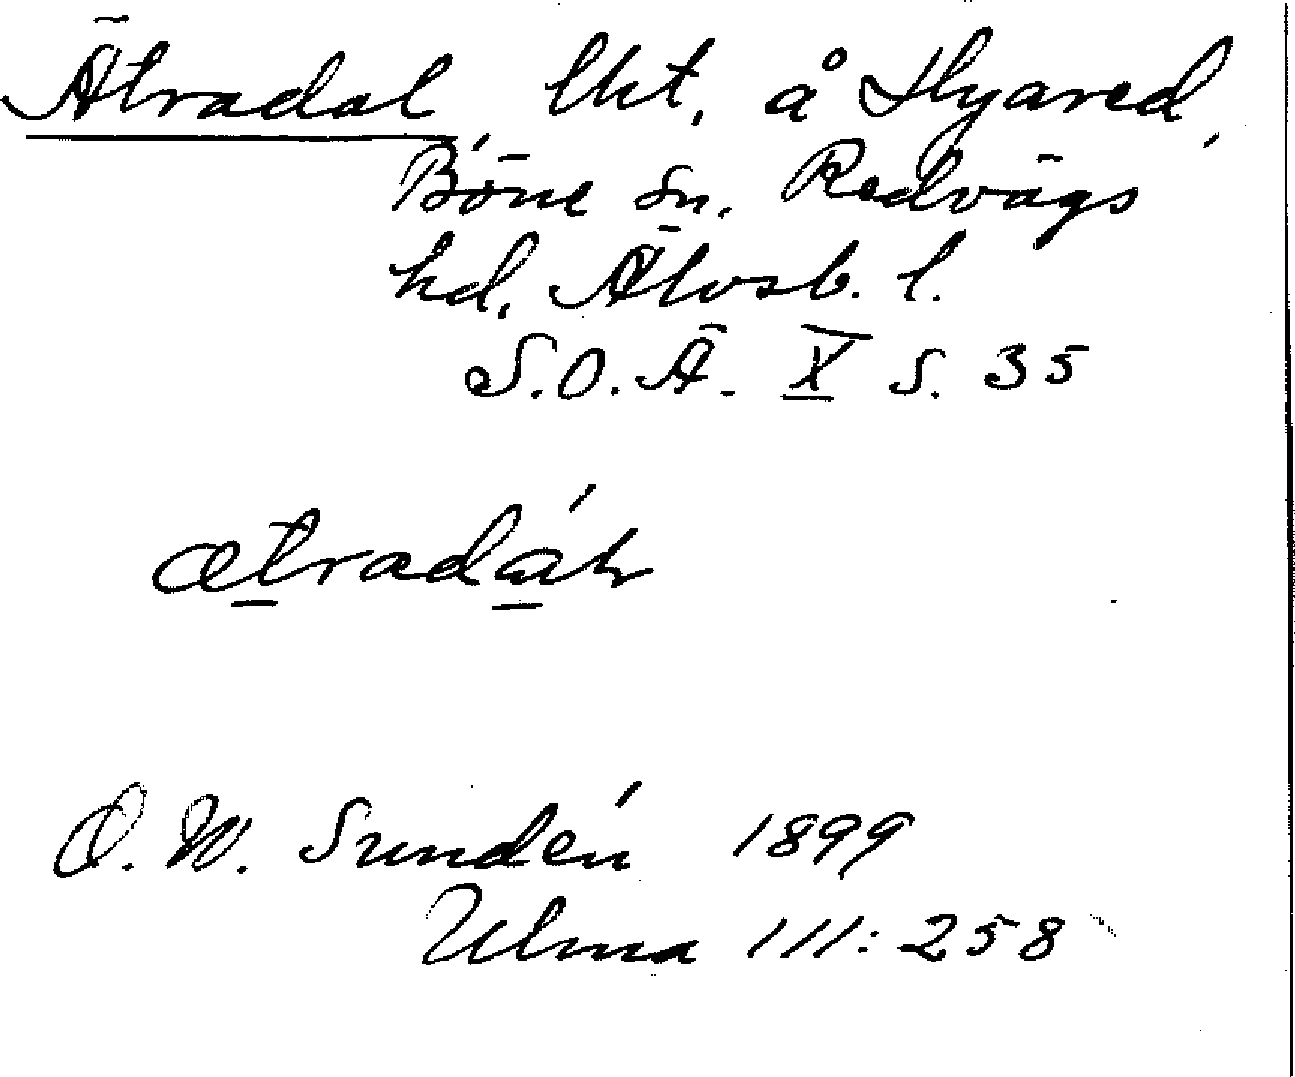 Ätradal, lht. å Hyared,
Böne sn. Redvägs
hd, Älvsb. l.
S.O.Ä. X S. 35
ætradáh
D. W. Sundén 1899
Ulma 111:258